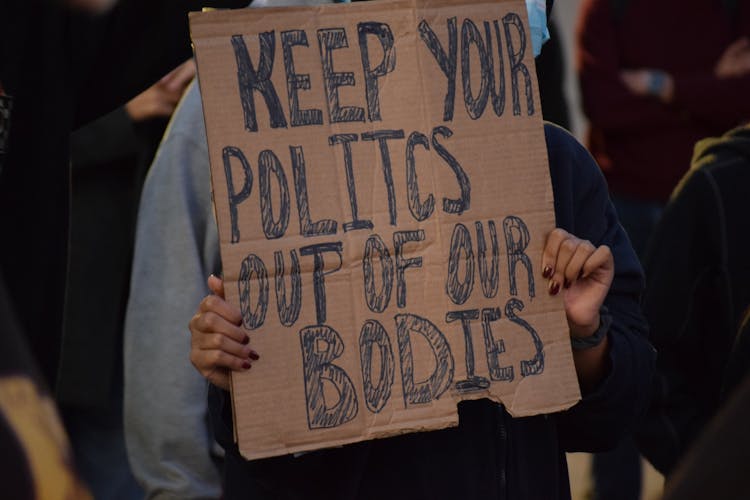 KEEP YOUR
POLITCS
OUT OF OUR
BODIES